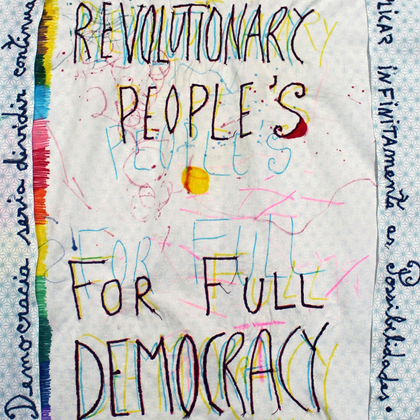 REVOLUTIONARY
PEOPLE'S
FOR FULL
DEMOCRACY
Democracia seria dividir contínua
LICAR iNFiNiTAMENTE as Possibilidades.